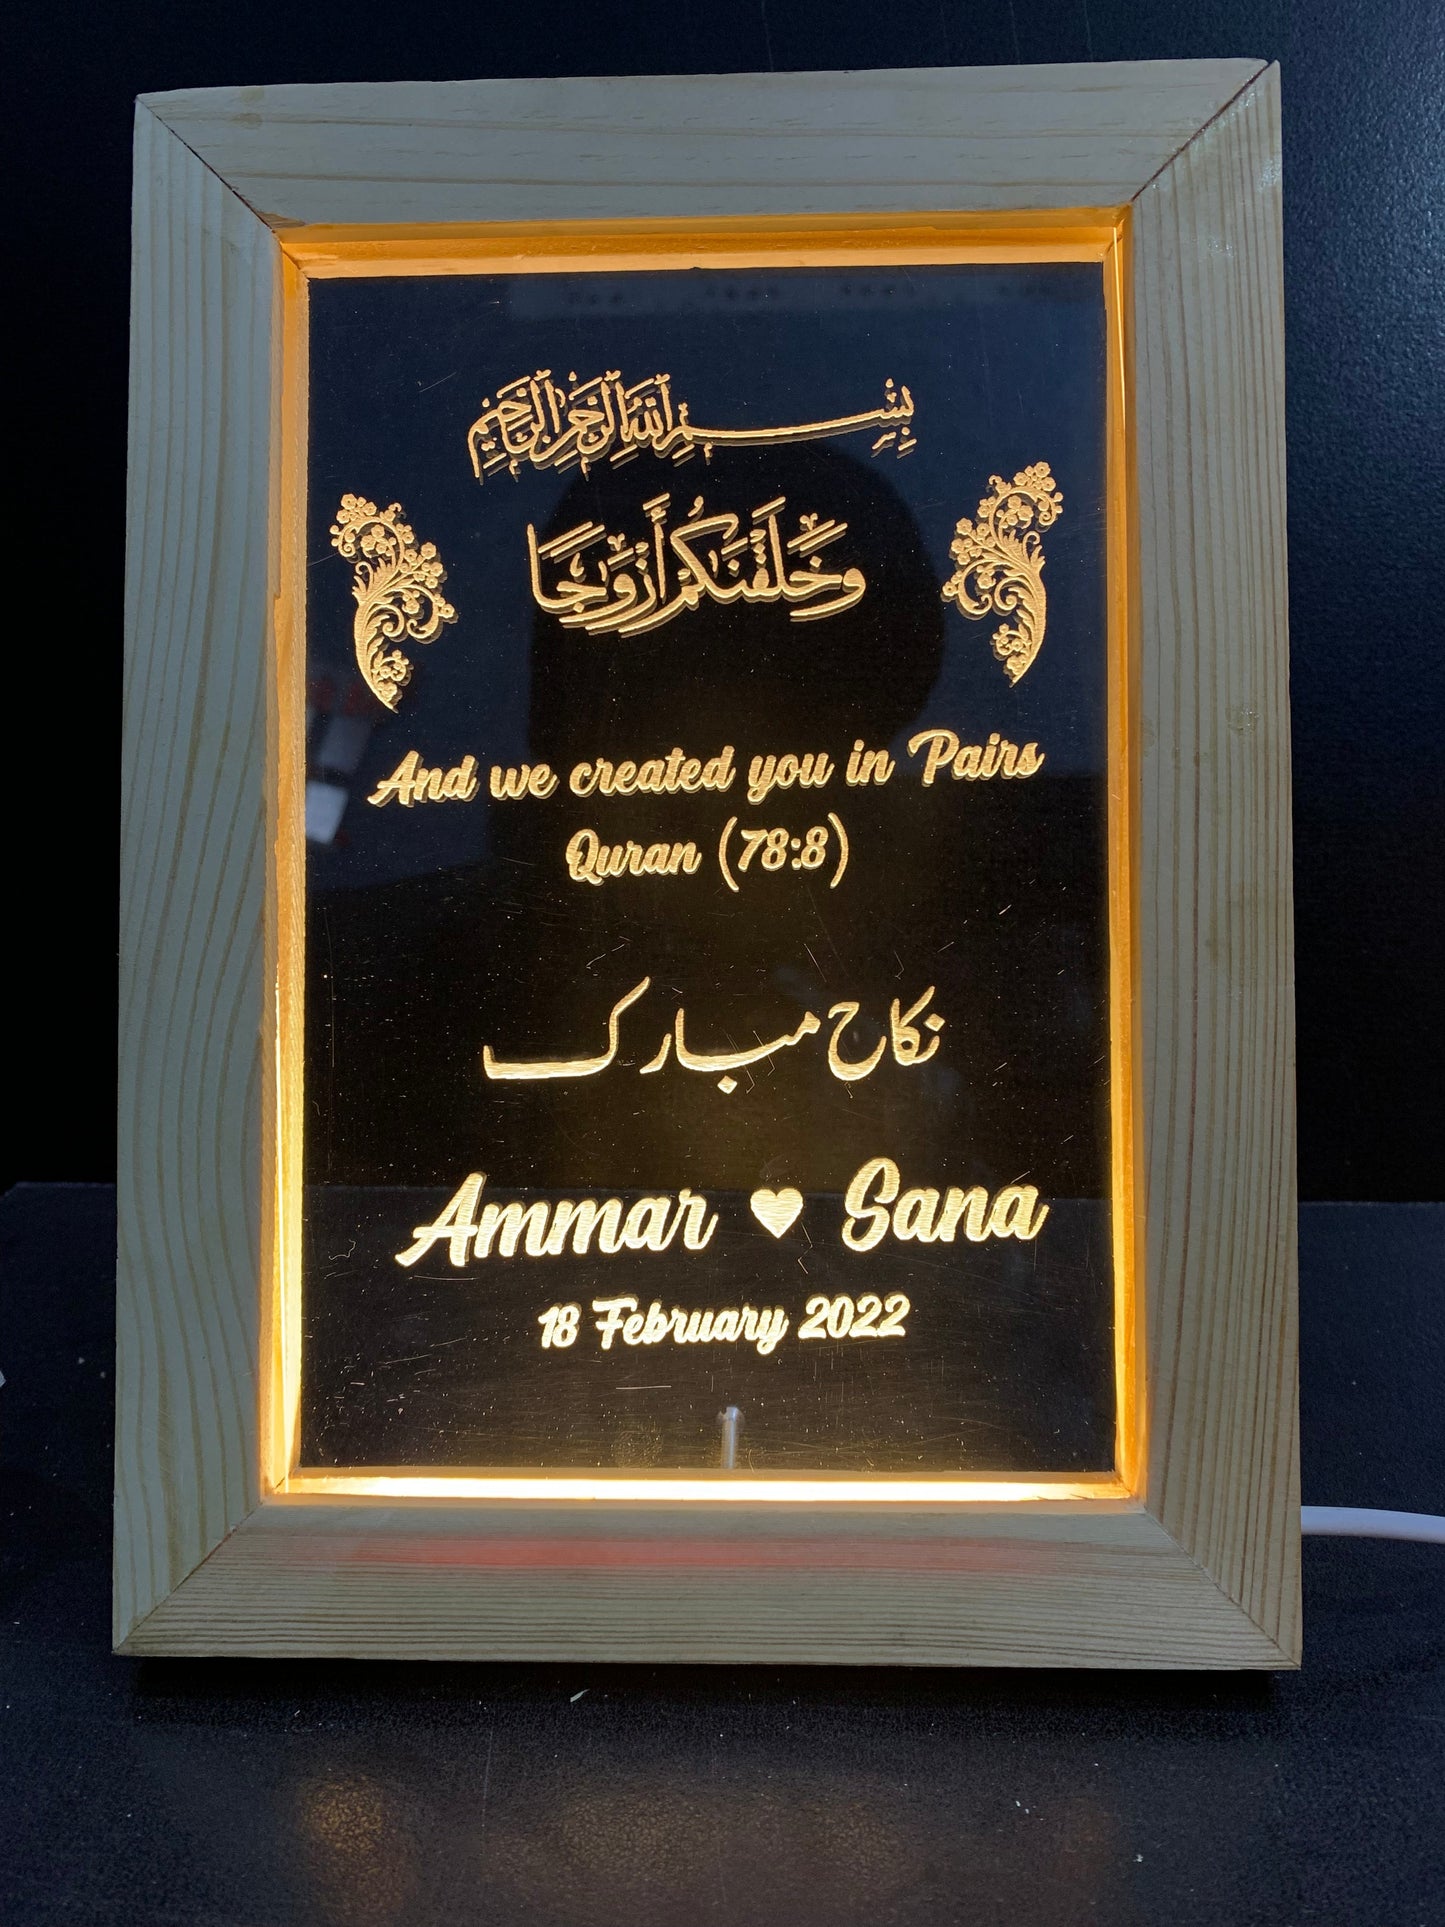 بِسْمِ اللَّهِ الرَّحْمَٰنِ الرَّحِيمِ
وَخَلَقْنَاكُمْ أَزْوَاجًا
And we created you in Pairs
Quran (78:8)
نکاح مبارک
Ammar ♥ Sana
18 February 2022